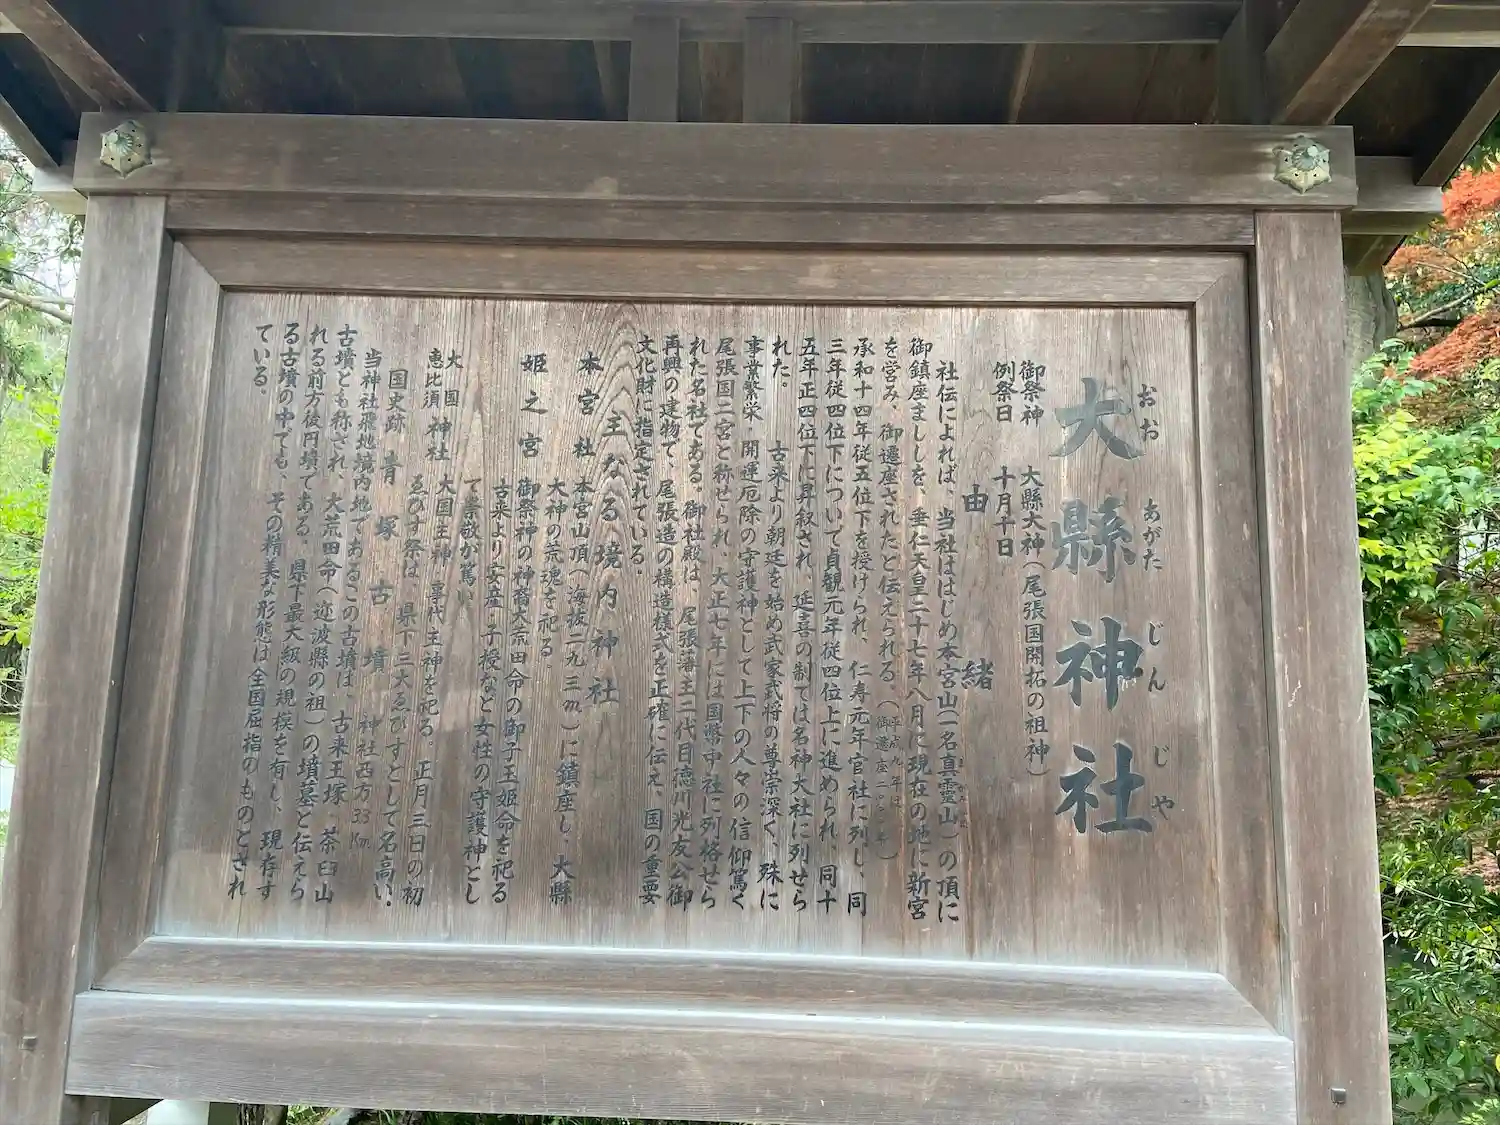 大縣神社
おお あがた じん じや
御祭神 大縣大神(尾張国開拓の祖神)
例祭日 十月十日
由緒
社伝によれば、当社ははじめ本宮山(一名真霊山)の頂に
御鎮座ましししを、垂仁天皇二十七年八月に現在の地に新宮
を営み、御遷座されたと伝えられる。(平成九年は御遷座二〇〇〇年)
承和十四年従五位下を授けられ、仁寿元年官社に列し、同
三年従四位下について貞観元年従四位上に進められ、同十
五年正四位下に昇叙され、延喜の制では名神大社に列せら
れた。 古来より朝廷を始め武家武将の尊崇深く、殊に
事業繁栄 開運厄除の守護神として上下の人々の信仰篤く
尾張国二宮と称せられ、大正七年には国幣中社に列格せら
れた名社である。御社殿は、尾張藩主二代目徳川光友公御
再興の建物で、尾張造の構造様式を正確に伝え、国の重要
文化財に指定されている。
主なる境内神社
本宮社 本宮山頂(海抜二九三m)に鎮座し、大縣
大神の荒魂を祀る。
姫之宮 御祭神の神裔大荒田命の御子玉姫命を祀る
古来より安産・子授など女性の守護神とし
て崇敬が篤い
大国恵比須神社 大国主神 事代主神を祀る。 正月三日の初
ゑびす祭は、県下三大ゑびすとして名高い。
国史跡 青塚古墳 神社西方3.3Km
当神社飛地境内地であるこの古墳は、古来王塚、茶臼山
古墳とも称され、大荒田命(迩波縣の祖)の墳墓と伝えら
れる前方後円墳である。県下最大級の規模を有し、現存す
る古墳の中でも、その精美な形態は全国屈指のものとされ
ている。